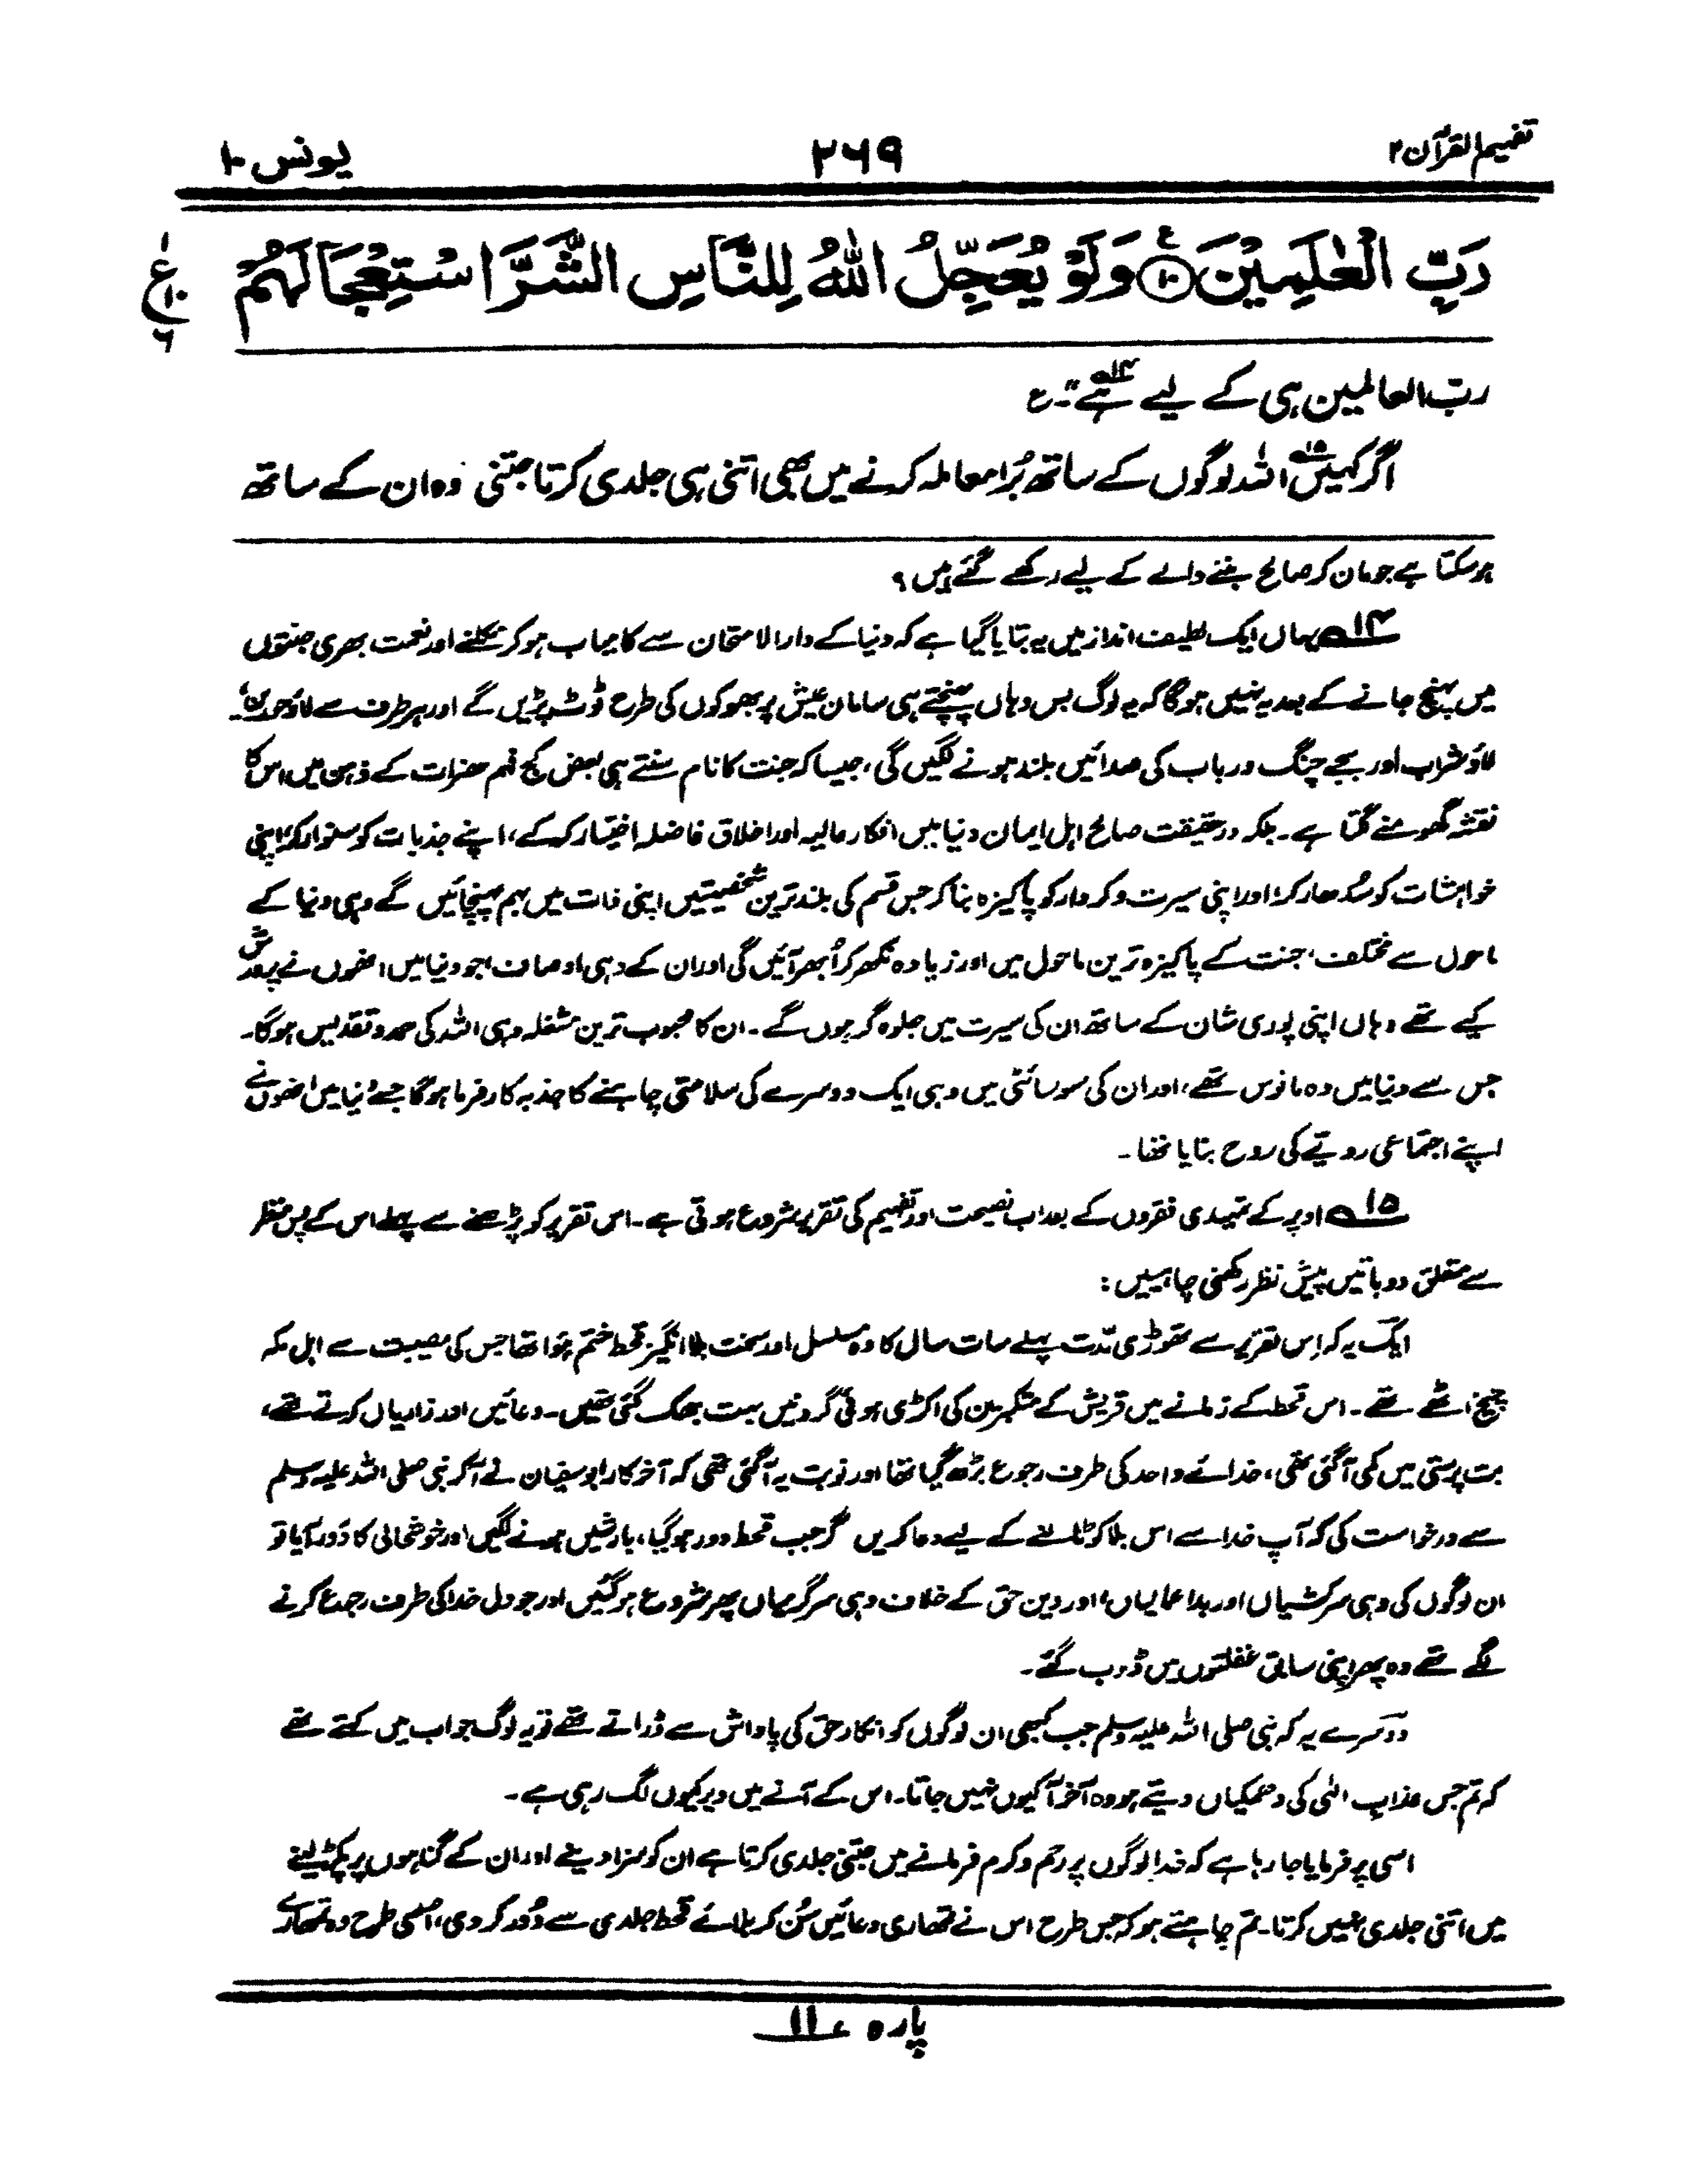 تفہیم القرآن ۲
۲۶۹
یونس ۱۰
رَبِّ الْعٰلَمِیْنَ ۝۱۰ وَلَوْ یُعَجِّلُ اللّٰہُ لِلنَّاسِ الشَّرَّ اسْتِعْجَالَہُمْ
ع
۱۰
۶
ربّ العالمین ہی کے لیے ہے ۱۴؎"۔ ع
اگر کہیں ۱۵؎ اللہ لوگوں کے ساتھ بُرا معاملہ کرنے میں بھی اتنی ہی جلدی کرتا جتنی وہ ان کے ساتھ
ہو سکتا ہے جو مان کر صالح بننے والے کے لیے رکھے گئے ہیں؟
۱۴؎ یہاں ایک لطیف انداز میں یہ بتایا گیا ہے کہ دنیا کے دار الامتحان سے کامیاب ہو کر نکلنے اور نعمت بھری جنتوں
میں پہنچ جانے کے بعد یہ نہیں ہو گا کہ یہ لوگ بس وہاں پہنچتے ہی سامان عیش پر بھوکوں کی طرح ٹوٹ پڑیں گے اور ہر طرف سے لاؤ حوریں،
لاؤ شراب اور بجے چنگ و رباب کی صدائیں بلند ہونے لگیں گی، جیسا کہ جنت کا نام سنتے ہی بعض کج فہم حضرات کے ذہن میں اس کا
نقشہ گھومنے لگتا ہے۔ بلکہ درحقیقت صالح اہل ایمان دنیا میں افکار عالیہ اور اخلاق فاضلہ اختیار کر کے، اپنے جذبات کو سنوار کر، اپنی
خواہشات کو سُدھار کر، اور اپنی سیرت و کردار کو پاکیزہ بنا کر جس قسم کی بلند ترین شخصیتیں اپنی ذات میں بہم پہنچائیں گے وہی دنیا کے
ماحول سے مختلف، جنت کے پاکیزہ ترین ماحول میں اور زیادہ نکھر کر اُبھر آئیں گی اور ان کے وہی اوصاف، جو دنیا میں انھوں نے پرورش
کیے تھے وہاں اپنی پوری شان کے ساتھ ان کی سیرت میں جلوہ گر ہوں گے۔ ان کا محبوب ترین مشغلہ وہی اللہ کی حمد و تقدیس ہو گا۔
جس سے دنیا میں وہ مانوس تھے، اور ان کی سوسائٹی میں وہی ایک دوسرے کی سلامتی چاہنے کا جذبہ کارفرما ہو گا جسے دُنیا میں انھوں نے
اپنے اجتماعی رویّے کی روح بنایا تھا۔
۱۵؎ اوپر کے تمہیدی فقروں کے بعد اب نصیحت اور تفہیم کی تقریر شروع ہوتی ہے۔ اس تقریر کو پڑھنے سے پہلے اس کے پس منظر
سے متعلق دو باتیں پیش نظر رکھنی چاہییں:
ایک یہ کہ اِس تقریر سے تھوڑی مدّت پہلے سات سال کا وہ مسلسل اور سخت بلا انگیز قحط ختم ہُوا تھا جس کی مصیبت سے اہل مکہ
چیخ اٹھے تھے۔ اس قحط کے زمانے میں قریش کے متکبرین کی اکڑی ہوئی گردنیں بہت جھک گئی تھیں۔ دعائیں اور زاریاں کرتے تھے،
بت پرستی میں کمی آ گئی تھی، خدائے واحد کی طرف رجوع بڑھ گیا تھا اور نوبت یہ آ گئی تھی کہ آخر کار ابو سفیان نے آ کر نبی صلی اللہ علیہ وسلم
سے درخواست کی کہ آپ خدا سے اس بلا کو ٹالنے کے لیے دعا کریں مگر جب قحط دور ہو گیا، بارشیں ہونے لگیں اور خوشحالی کا دَور آیا تو
ان لوگوں کی وہی سرکشیاں اور بداعمالیاں، اور دین حق کے خلاف وہی سرگرمیاں پھر شروع ہو گئیں اور جو دل خدا کی طرف رجوع کرنے
لگے تھے وہ پھر اپنی سابق غفلتوں میں ڈوب گئے۔
دوسرے یہ کہ نبی صلی اللہ علیہ وسلم جب کبھی ان لوگوں کو انکار حق کی پاداش سے ڈراتے تھے تو یہ لوگ جواب میں کہتے تھے
کہ تم جس عذاب الٰہی کی دھمکیاں دیتے ہو وہ آخر آ کیوں نہیں جاتا۔ اس کے آنے میں دیر کیوں لگ رہی ہے۔
اسی پر فرمایا جا رہا ہے کہ خدا لوگوں پر رحم و کرم فرمانے میں جتنی جلدی کرتا ہے ان کو سزا دینے اور ان کے گناہوں پر پکڑ لینے
میں اتنی جلدی نہیں کرتا۔ تم چاہتے ہو کہ جس طرح اس نے تمھاری دعائیں سُن کر بلائے قحط جلدی سے دُور کر دی، اُسی طرح وہ تمھارے
پارہ ۱۱